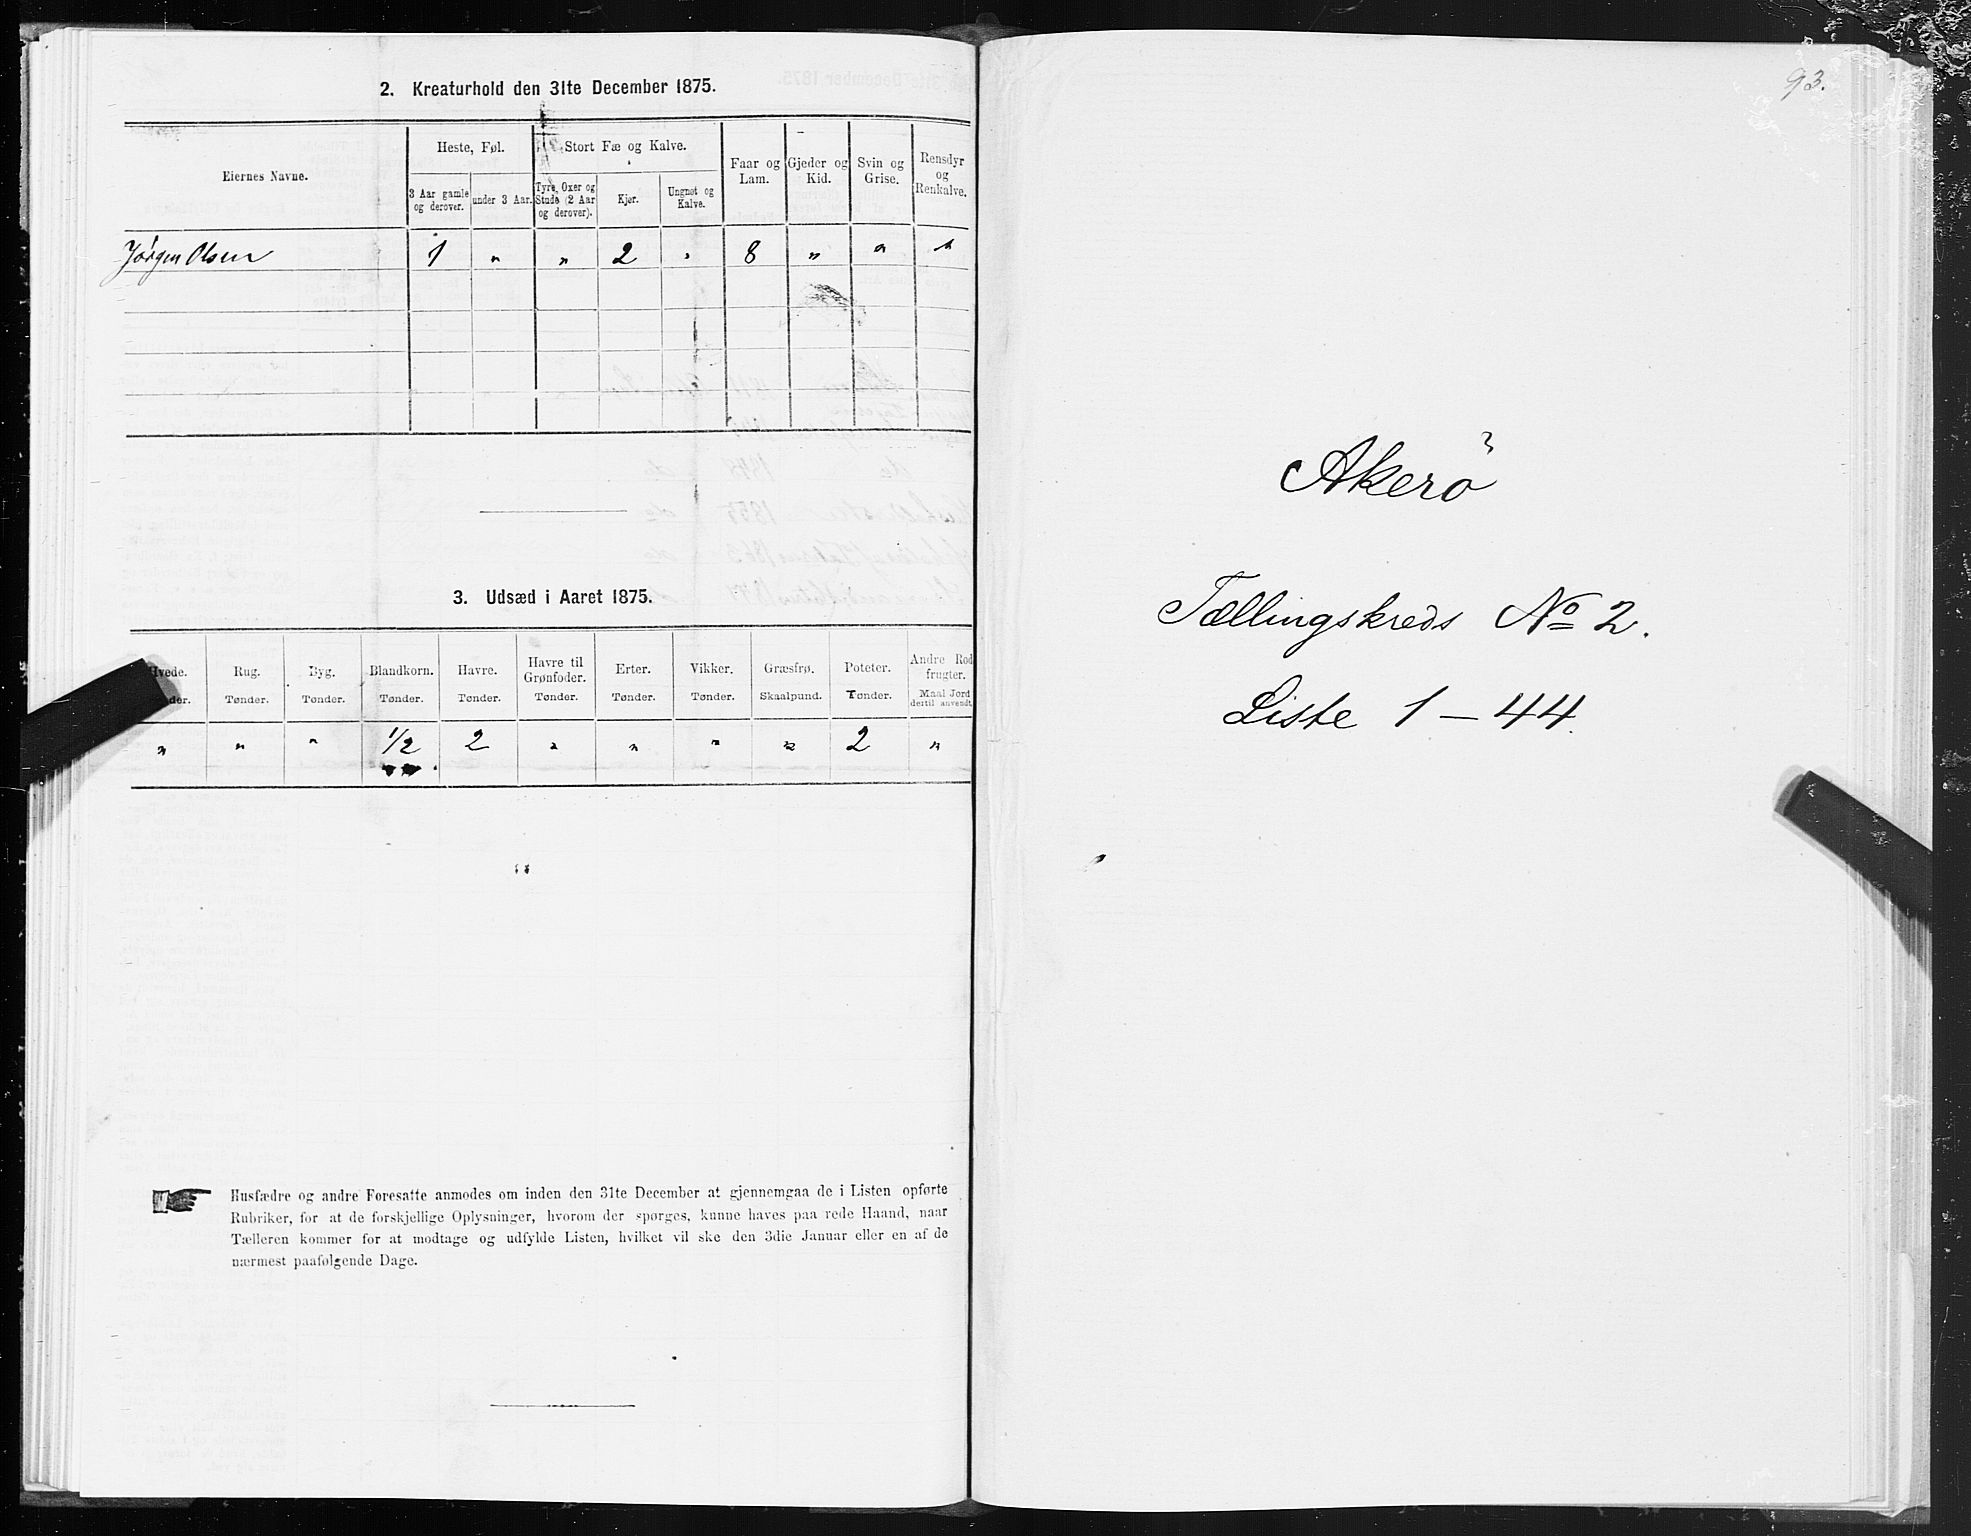 2. Kreaturhold den 31te December 1875.
Eiernes Navne.
Heste, Føl.
3 Aar gamle og derover.
under 3 Aar.
Stort Fæ og Kalve.
Tyre, Oxer og Stude (2 Aar og derover).
Kjør.
Ungnøt og Kalve.
Faar og Lam.
Gjeder og Kid.
Svin og Grise.
Rensdyr og Renkalve.
Jörgen Olsen 1 " " 2 " 8 " " "
3. Udsæd i Aaret 1875.
Hvede. Rug. Byg. Blandkorn. Havre. Havre til Grønfoder. Erter. Vikker. Græsfrø. Poteter. Andre Rodfrugter.
Tønder. Tønder. Tønder. Tønder. Tønder. Tønder. Tønder. Skaalpund. Tønder. Maal Jord dertil anvendt.
" " " 1/2 2 " " " " 2 "
Husfædre og andre Foresatte anmodes om inden den 31te December at gjennemgaa de i Listen opførte
Rubriker, for at de forskjellige Oplysninger, hvorom der spørges, kunne haves paa rede Haand, naar
Tælleren kommer for at modtage og udfylde Listen, hvilket vil ske den 3die Januar eller en af de
nærmest paafølgende Dage.
93.
Akerö
Tællingskreds No 2.
Liste 1 – 44.